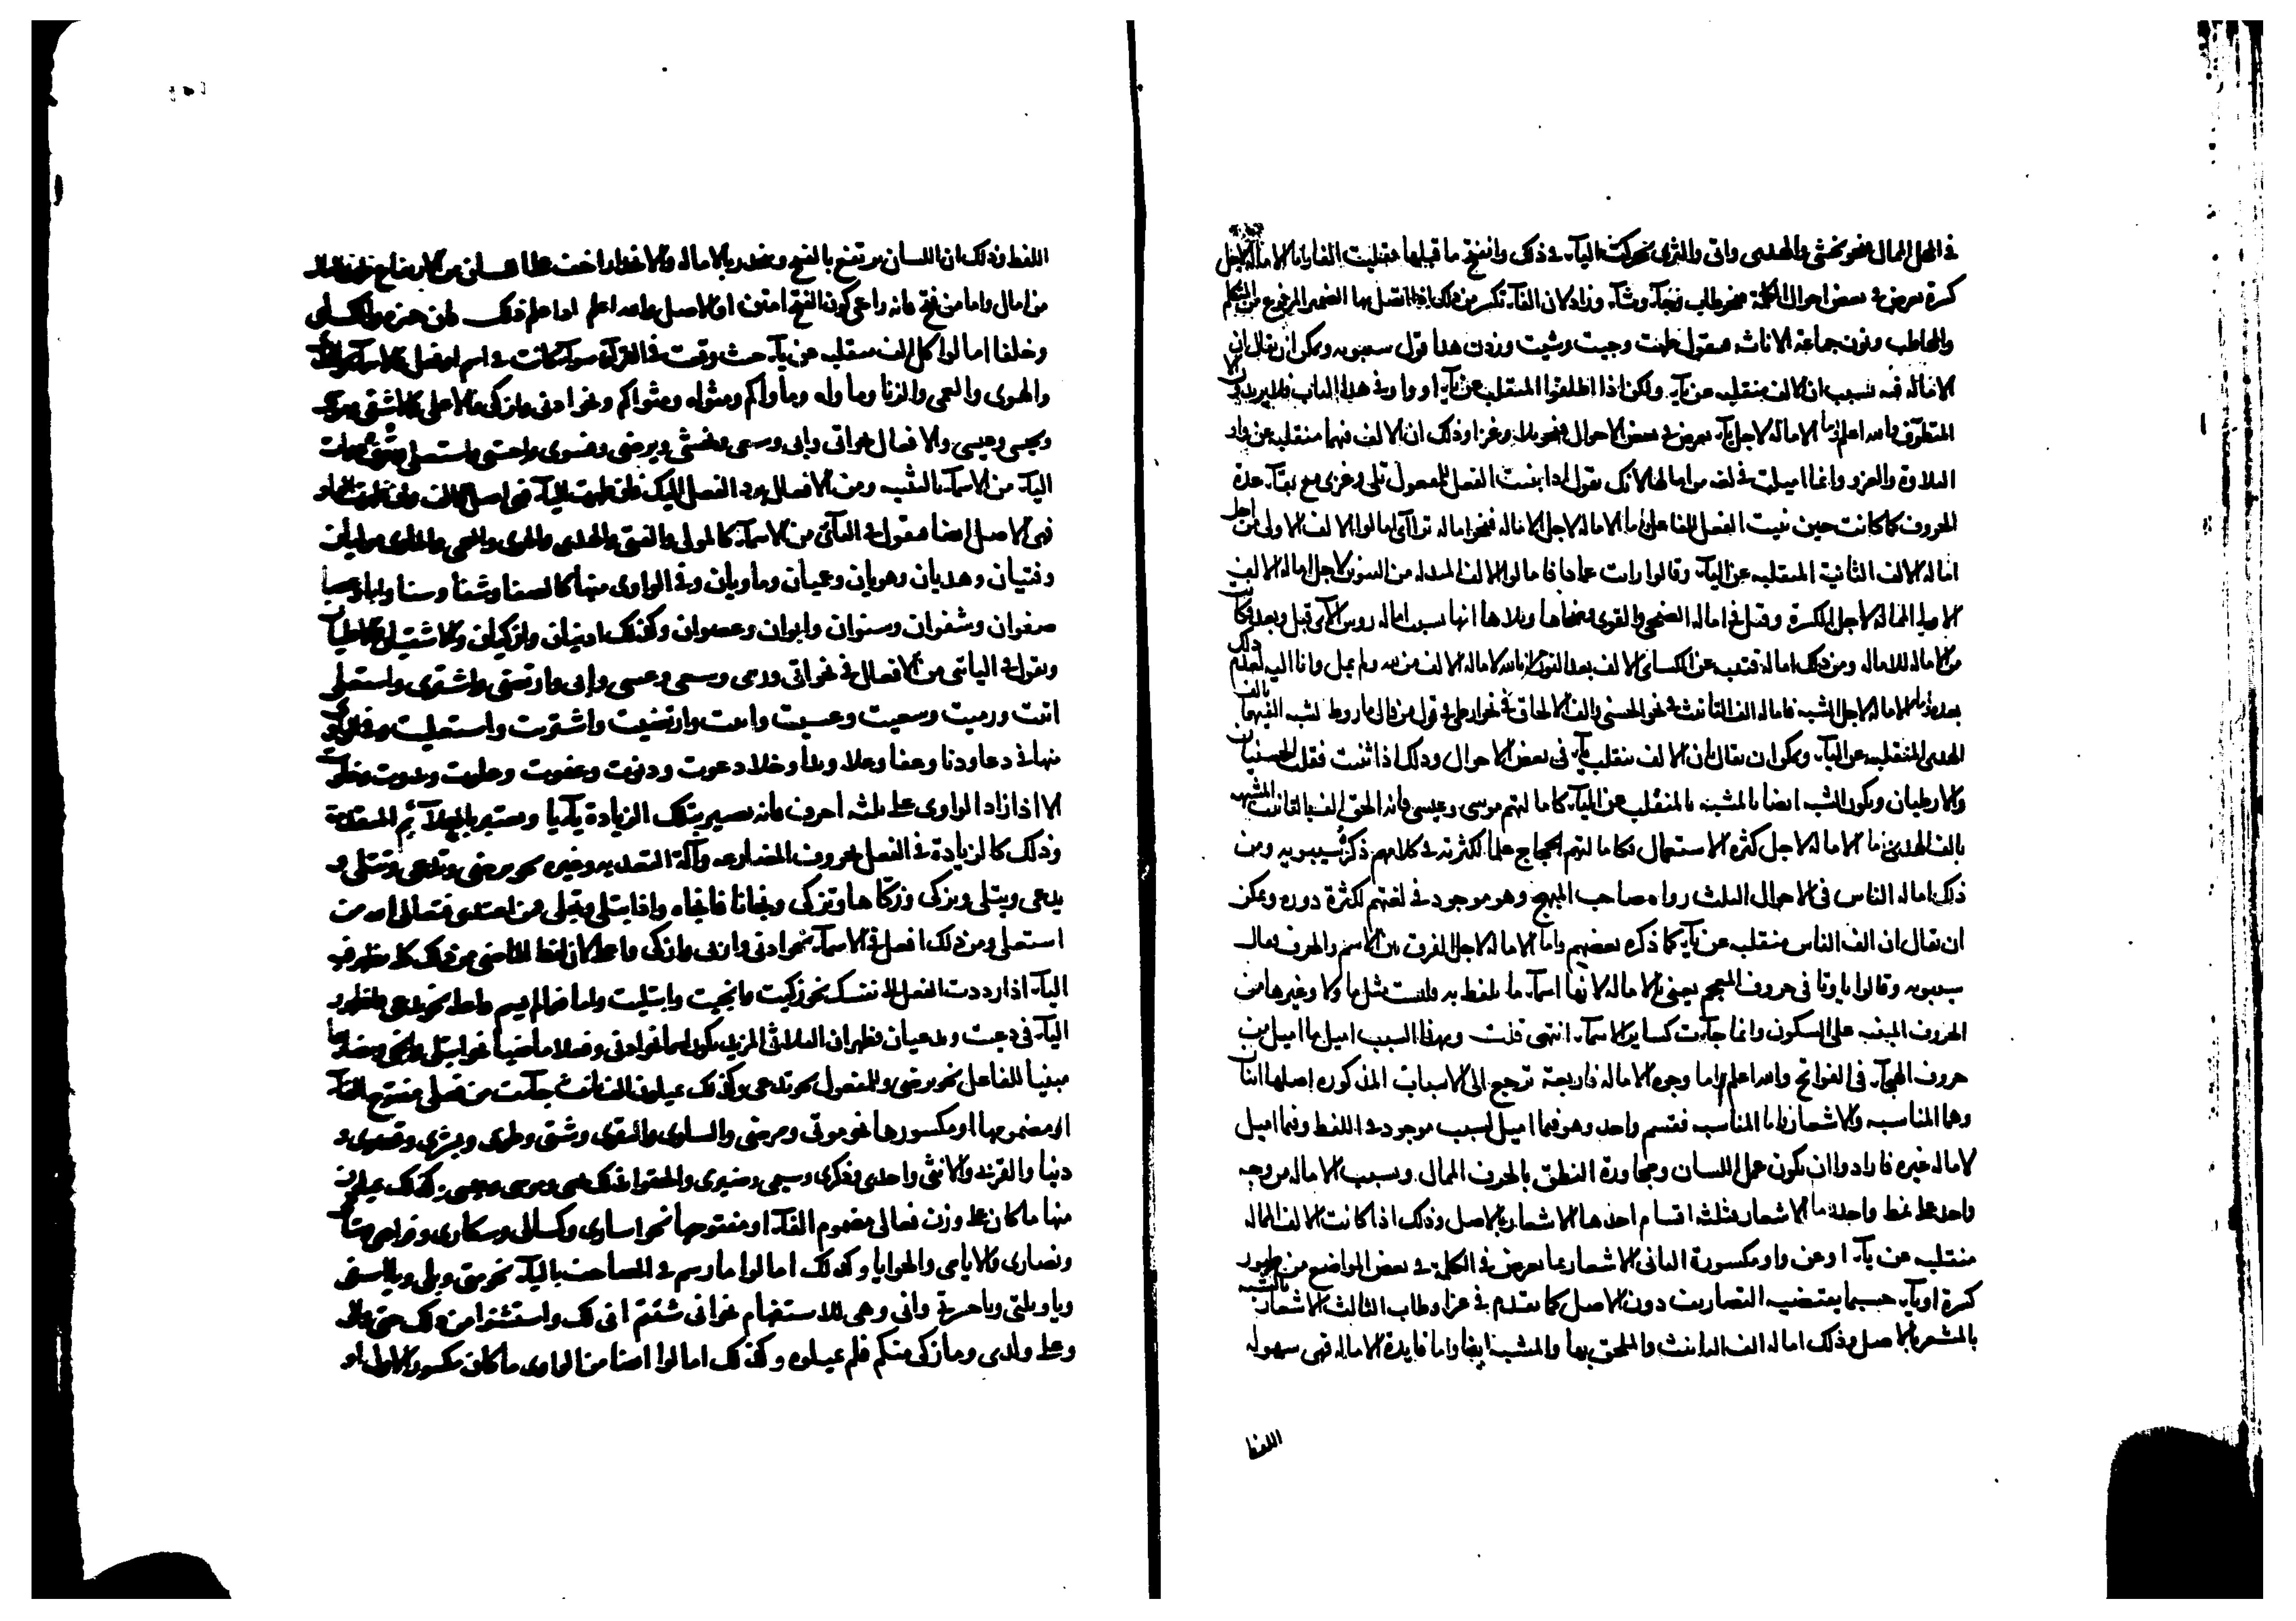 في المحل الممال نحو يخشى والهدى واتى والثرى تحركت اليآء في ذلك وانفتح ما قبلها فقلبت الفا واما الامالة لاجل
كسرة تعرض في بعض احوال الكلمة نحو طاب وجآء وشآء وزاد لان الفآء تكسر من ذلك اذا اتصل بها الضمير المرفوع من المتكلم
والمخاطب ونون جماعة الاناث فتقول طبت وجيت وشيت وزدت هذا قول سيبويه ويمكن ان يقال ان
الامالة فيه بسبب ان الالف منقلبه عن يآء ولكن اذا اطلقوا المنقلب عن يآء او واو في هذا الباب فلا يريدون الا
المتطرف والله اعلم واما الامالة لاجل يآء تعرض في بعض الاحوال فنحو تلا وغزا وذلك ان الالف فيهما منقلبه عن واو
التلاوة والغزو وانما اميلت في لغة من امالها لانك تقول اذا بنيت الفعل للمفعول تلي وغزي مع بقآء عدة
الحروف كما كانت حين بنيت الفعل للفاعل واما الامالة لاجل الامالة فنحو امالة ترآاى امالوا الالف الاولى من اجل
امالة الالف الثانية المنقلبه عن اليآء وقالوا رايت عمادا فامالوا الالف المبدلة من التنوين لاجل امالة الالف
الاولى الممالة لاجل الكسرة وقيل في امالة الضحى والقوى وضحاها وتلاها انها بسبب امالة روس الآى قبل وبعد فكانت
من الامالة للامالة ومن ذلك امالة قتيبه عن الكسائى الالف بعد النون من انا لله لامالة الالف من لله ولم يمل وانا اليه لعدم ذلك
بعده واما الامالة لاجل الشبه فامالة الف التانيث في نحو الحسنى والف الالحاق في نحو ارطى في قول من قال ماروط لشبه الفيهما بالف
الهدى المنقلبه عن اليآء ويمكن ان يقال بان الالف تنقلب يآء في بعض الاحوال وذلك اذا ثنيت فقلت الحسنيان
والارطيان ويكون الشبه ايضا بالمشبه بالمنقلب عن اليآء كامالتهم موسى وعيسى فانه الحق بالف التانيث المشبهه
بالف الهدى واما الامالة لاجل كثرة الاستعمال فكامالتهم الحجاج علما لكثرته في كلامهم ذكره سيبويه ومن
ذلك امالة الناس في الاحوال الثلث رواه صاحب المبهج وهو موجود في لغتهم لكثرة دوره ويمكن
ان يقال ان الف الناس منقلبه عن يآء كما ذكره بعضهم واما الامالة لاجل الفرق بين الاسم والحرف فقال
سيبويه وقالوا با وتا في حروف المعجم يعني بالامالة لانها اسمآء ما يلفظ به وليست مثل ما ولا وغيرها من
الحروف المبنيه على السكون وانما جآءت كساير الاسمآء انتهى قلت وبهذا السبب اميل ما اميل من
حروف الهجآء في الفواتح والله اعلم واما وجوه الامالة فاربعة ترجع الى الاسباب المذكورة اصلها اثنان
وهما المناسبه والاشعار فاما المناسبه فقسم واحد وهو فيما اميل لسبب موجود في اللفظ وفيما اميل
لامالة غيره فارادوا ان يكون عمل اللسان ومجاورة النطق بالحرف الممال وبسبب الامالة من وجه
واحد على نمط واحد واما الاشعار فثلثة اقسام احدها الاشعار بالاصل وذلك اذا كانت الالف الممالة
منقلبه عن يآء او عن واو مكسورة الثانى الاشعار بما يعرض في الكلمة في بعض المواضع من ظهور
كسرة او يآء حسبما يقتضيه التصاريف دون الاصل كما تقدم في غزا وطاب الثالث الاشعار بالشبه
بالمشعر بالاصل وذلك امالة الف التانيث والملحق بها والمشبه ايضا واما فايدة الامالة فهي سهوله
اللفظ
اللفظ وذلك ان اللسان يرتفع بالفتح وينحدر بالامالة والانحدار اخف على اللسان من الارتفاع فلهذا امال
من امال واما من فتح فانه راعى كون الفتح امتن او الاصل والله اعلم اذا علم ذلك فان حمزه والكسائى
وخلفا امالوا كل الف منقلبه عن يآء حيث وقعت في القرآن سوآء كانت في اسم او فعل فالاسمآء نحو
والهوى والعمى والزنا وماواه وماواكم ومثواه ومثواكم ونحو ادنى وازكى والاعلى والاشقى وموسى
ويحيى وعيسى والافعال نحو اتى وابى وسعى ويخشى ويرضى وفسوى واجتبى واستعلى وتعرف ذوات
اليآء من الاسمآء بالتثنيه ومن الافعال برد الفعل اليك فان ظهرت اليآء فهي اصل الالف وان ظهرت الواو
فهي الاصل ايضا فتقول في اليآئي من الاسمآء كالمولى والفتى والهدى والهوى والعمى والماوى موليان
وفتيان وهديان وهويان وعميان وماويان وفي الواوى منها كالصفا وشفا وسنا وابا وعصا
صفوان وشفوان وسنوان وابوان وعصوان وكذلك ادنيان وازكيان والاشقيان والاعليان
وتقول في اليائى من الافعال في نحو اتى ورمى وسعى وعسى وابى وارتضى واشترى واستعلى
اتيت ورميت وسعيت وعسيت وابيت وارتضيت واشتريت واستعليت وفي الواوى
منها في دعا ودنا وعفا وعلا وبدا وخلا دعوت ودنوت وعفوت وعلوت وبدوت وخلوت
الا اذا زاد الواوى على ثلثه احرف فانه يصير بتلك الزيادة يآئيا ويعتبر بالعلآئم المتقدمة
وذلك كالزيادة في الفعل بحروف المضارعه وآلة التعديه وغيره نحو يرضى وتدعى وتتلى و
يدعى ويتلى ويزكى وزكاها وتزكى ونجانا فانجاه واذا ابتلى وتجلى فمن اعتدى فتعالى الله من
استعلى ومن ذلك افعل في الاسمآء نحو ادنى واربى وازكى واعلى لان لفظ الماضى من ذلك كله تظهر فيه
اليآء اذا رددت الفعل الى نفسك نحو زكيت وانجيت وابتليت واما فيما لم يسم فاعله نحو يدعى فلظهور
اليآء في دعيت ويدعيان فظهر ان الثلاثى المزيد يكون اسما نحو ادنى وفعلا ماضيا نحو ابتلى وانجى ومضارعا
مبنيا للفاعل نحو يرضى وللمفعول نحو تدعى وكذلك يميلون الف التانيث جآءت من فعلى مفتوح الفآء
او مضمومها او مكسورها نحو موتى ومرضى والسلوى والتقوى وشتى وطوبى وبشرى وقصوى و
دنيا والقربى والانثى واحدى وذكرى وسيمى وضيزى والحقوا بذلك يحيى وموسى وعيسى وكذلك يميلون
منها ما كان على وزن فعالى مضموم الفآء او مفتوحها نحو اسارى وكسالى وسكارى وفرادى ويتامى
ونصارى والايامى والحوايا وكذلك امالوا ما رسم في المصاحف باليآء نحو متى وبلى ويا اسفى
ويا ويلتى ويا حسرتى وانى وهي للاستفهام نحو انى شئتم انى لك واستثنوا من ذلك حتى والى
وعلى ولدى وما زكى منكم فلم يميلوه وكذلك امالوا ايضا من الواوى ما كان مكسور الاول او